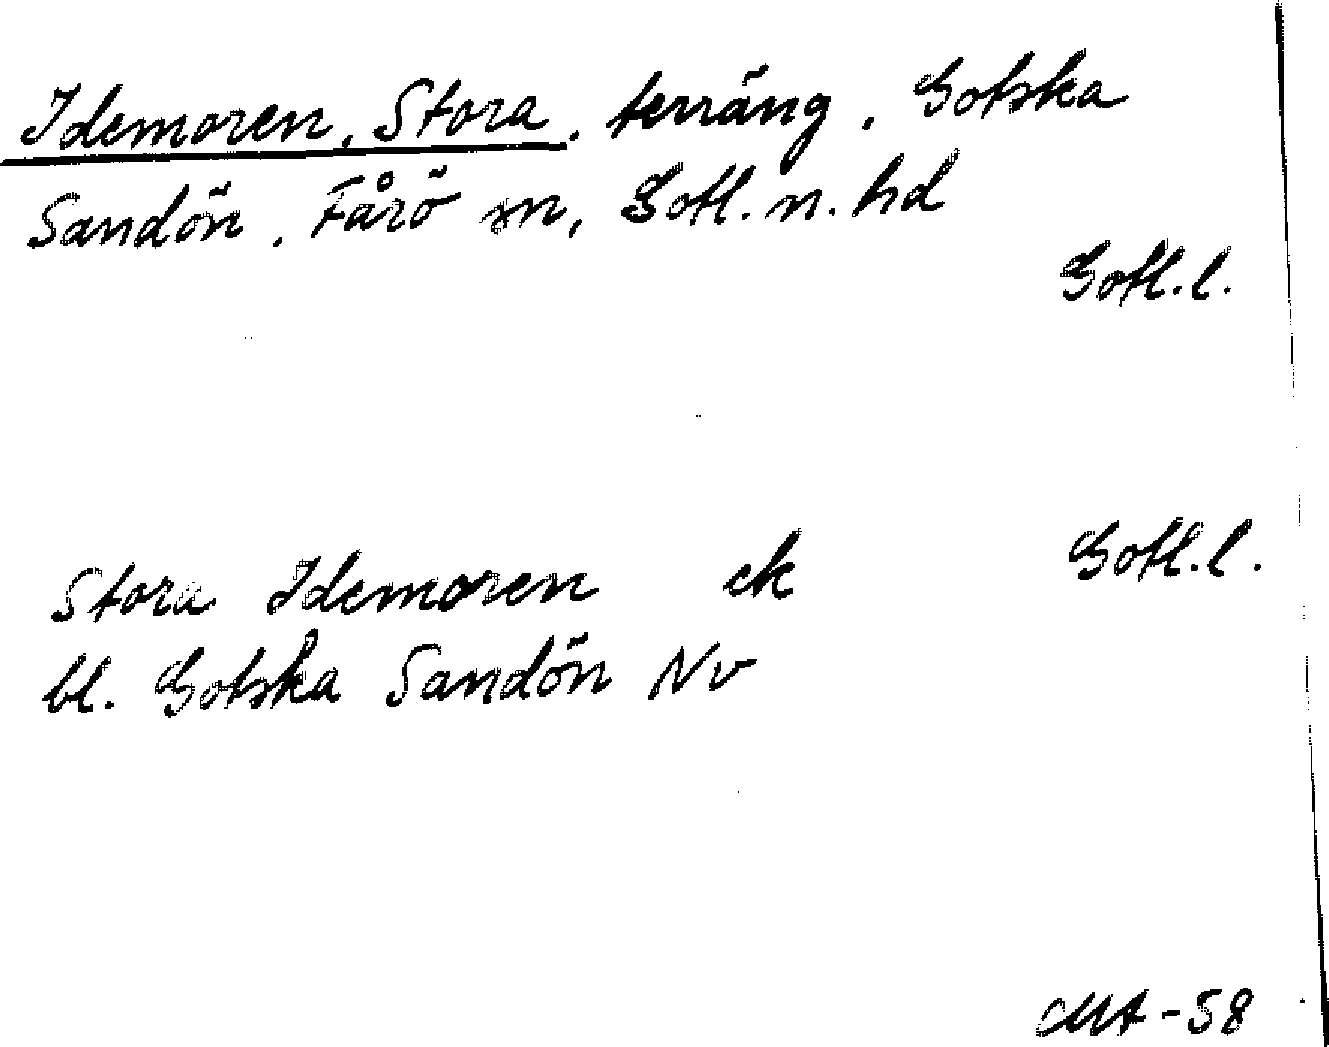 Idemoren, Stora, terräng, Gotska
Sandön, Fårö sn, Gotl. n. hd
Gotl. l.
Stora Idemoren ek Gotl. l.
bl. Gotska Sandön Nv
MA-58